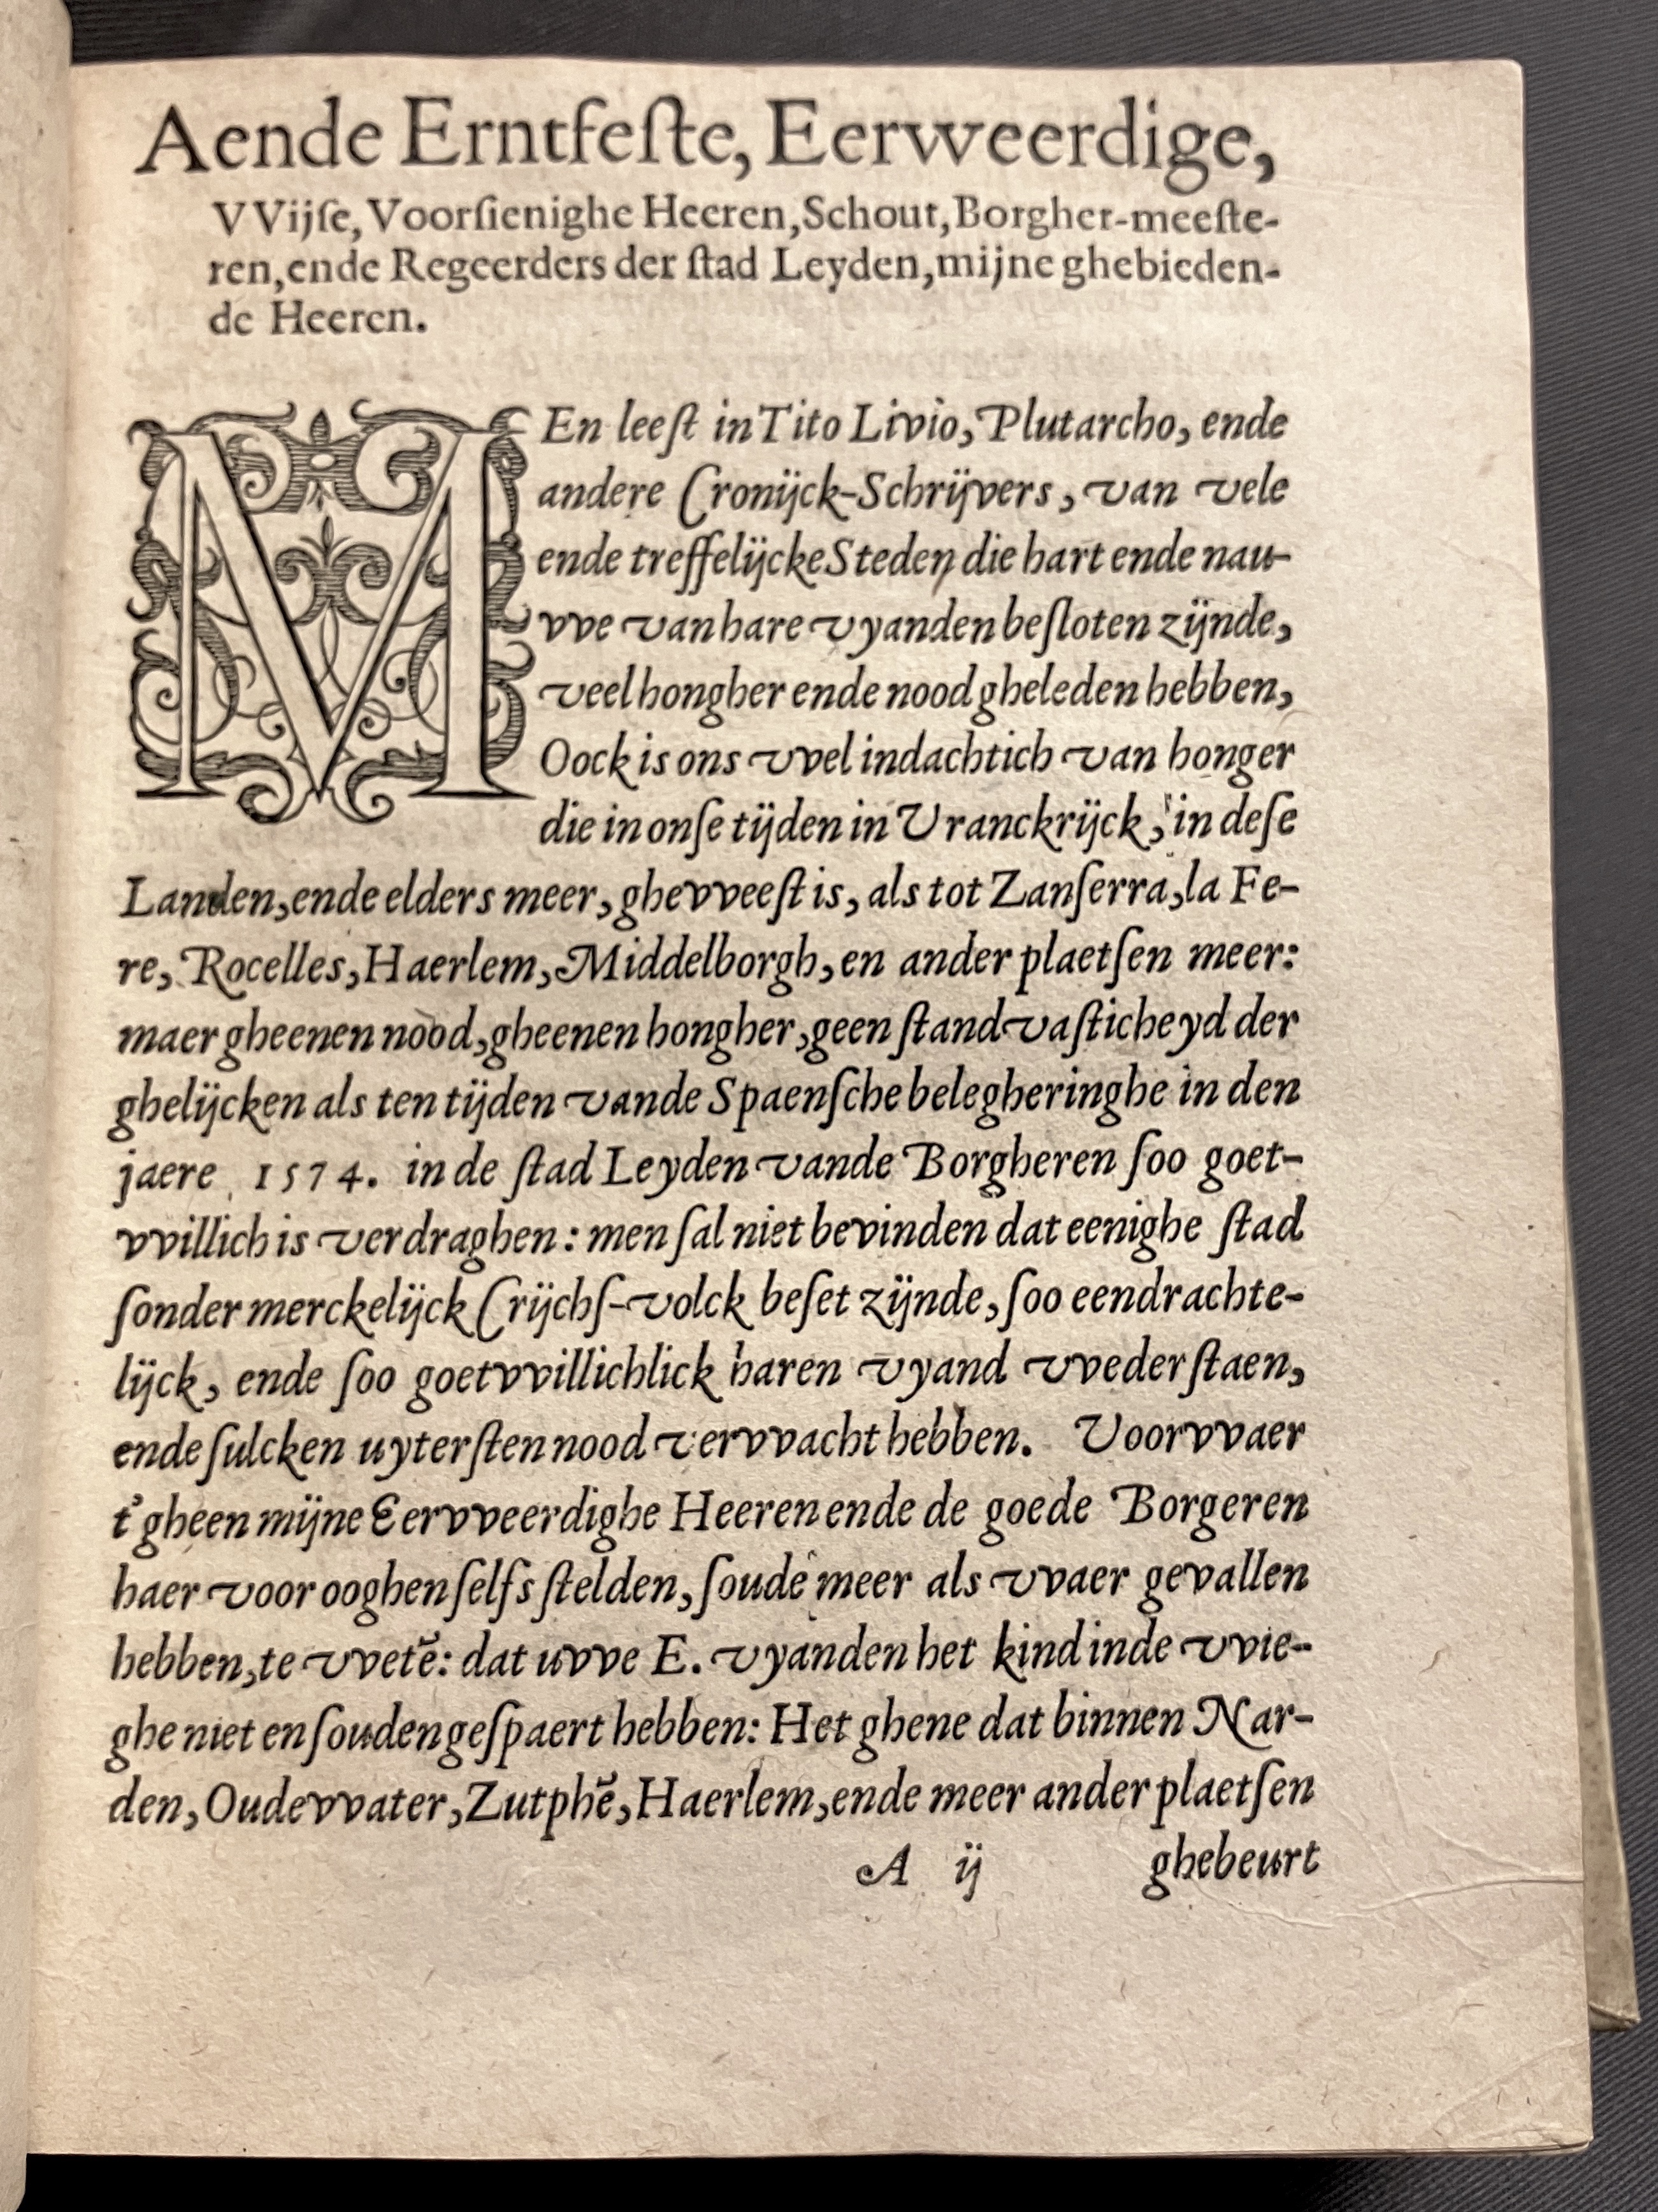 Aende Erntfeſte, Eerweerdige,
VVijſe, Voorſienighe Heeren, Schout, Borgher-meeſte-
ren, ende Regeerders der ſtad Leyden, mijne ghebieden-
de Heeren.
MEn leeſt in Tito Livio, Plutarcho, ende
andere Cronijck-Schrijvers, van vele
ende treffelijcke Steden die hart ende nau-
vve van hare vyanden beſloten zijnde,
veel hongher ende nood gheleden hebben,
Oock is ons vvel indachtich van honger
die in onſe tijden in Vranckrijck, in deſe
Landen, ende elders meer, ghevveeſt is, als tot Zanſerra, la Fe-
re, Rocelles, Haerlem, Middelborgh, en ander plaetſen meer:
maer gheenen nood, gheenen hongher, geen ſtandvaſticheyd der
ghelijcken als ten tijden vande Spaenſche belegheringhe in den
jaere 1574. in de ſtad Leyden vande Borgheren ſoo goet-
vvillich is verdraghen: men ſal niet bevinden dat eenighe ſtad
ſonder merckelijck Crijchſ-volck beſet zijnde, ſoo eendrachte-
lijck, ende ſoo goetvvillichlick haren vyand vvederſtaen,
ende ſulcken uyterſten nood vervvacht hebben. Voorvvaer
t'gheen mijne Eervveerdighe Heeren ende de goede Borgeren
haer voor ooghen ſelfs ſtelden, ſoude meer als vvaer gevallen
hebben, te vvetẽ: dat uvve E. vyanden het kind inde vvie-
ghe niet en ſouden geſpaert hebben: Het ghene dat binnen Nar-
den, Oudevvater, Zutphẽ, Haerlem, ende meer ander plaetſen
A ij ghebeurt